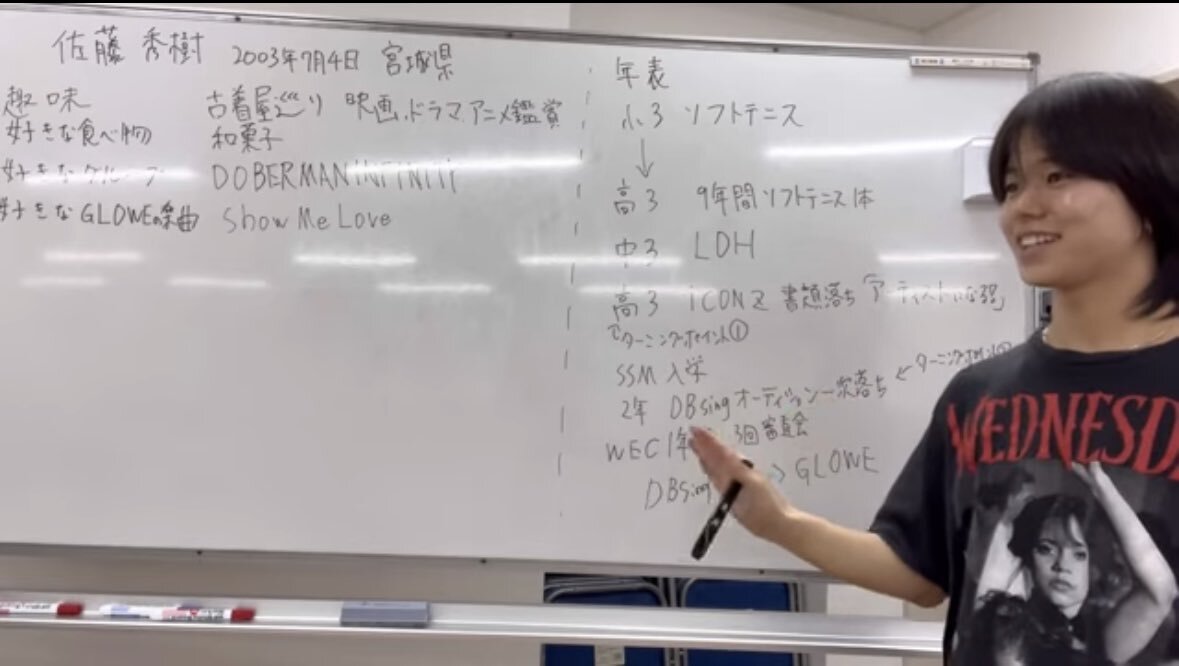 佐藤 秀樹 2003年7月4日 宮城県
趣味 古着屋巡り 映画、ドラマ、アニメ鑑賞
好きな食べ物 和菓子
好きなグループ DOBERMAN INFINITY
好きなGLOWEの楽曲 Show Me Love
年表
小3 ソフトテニス
↓
高3 9年間ソフトテニス
中3 LDH
高3 iCON Z 書類落ち
ターニングポイント①
SSM入学
2年 DBsingオーディション一次落ち ← ターニングポイント
WEC 1年 3回 審査会
DBsing → GLOWE
WEDNESD